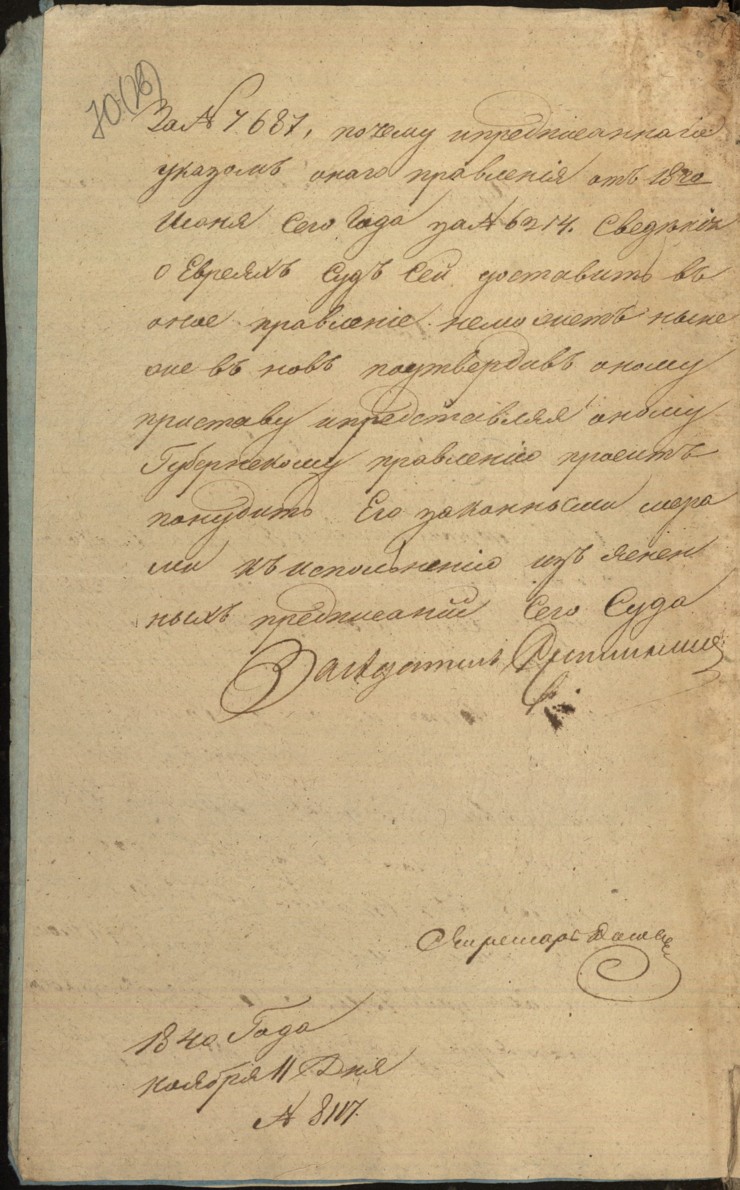 70 (об)
За № 7687, почему ипредписанная
указомъ онаго правленія отъ 18го
Июня Сего Года за № 6214. Сведѣнія
о Евреяхъ Судъ Сей доставить въ
оное правленіе неможетъ ныне
же въ новь подтвердивъ оному
приставу ипредставляя оному
Губернскому правленію проситъ
понудить Его законными мера
ми къ исполненію изъяснен
ныхъ предписаній Сего Суда
Заседатель
Секретарь
1840 Года
ноября 11 Дня
№ 8117.